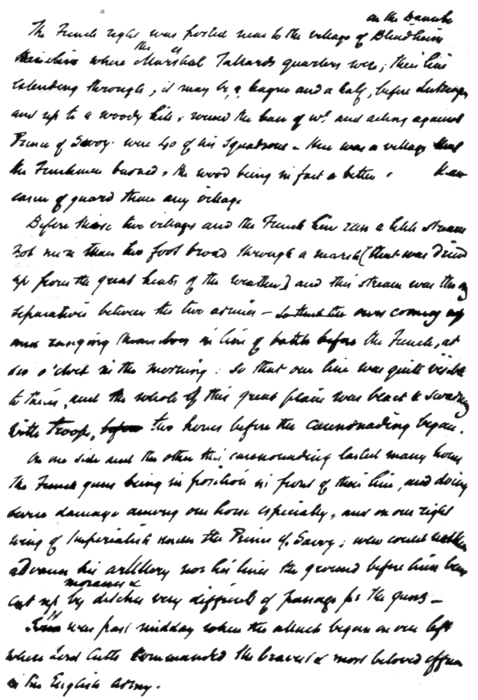 on the Danube
The French right was posted near to the village of Blindheim
where the Marshal Tallard's quarters were; their line
extending through, it may be a league and a half, before Lutzingen
and up to a woody hill, round the base of wh. and acting against
Prince of Savoy were 40 of his Squadrons. Here was a village that
the Frenchmen burned, the wood being in fact a better than
cover of guard than any village.
Before these two villages and the French line ran a little stream
not more than two foot broad through a marsh (that was dried
up from the great heats of the weather) and this stream was the only
separation between the two armies — ours coming up
and ranging themselves in line of battle before the French, at
six o'clock in the morning: so that our line was quite visible
to theirs, and the whole of this great plain was black & swarming
with troops, before two hours before the cannonading began.
On one side and the other this cannonading lasted many hours
the French guns being in position in front of their line, and doing
severe damage among our horse especially, and on our right
wing of Imperialists under the Prince of Savoy; who could neither
advance his artillery nor his lines the ground before him being
cut up by ditches morasses & very difficult of passage for the guns —
It was past midday when the attack began on our left
where Lord Cutts commanded the bravest & most beloved officer
in the English Army.